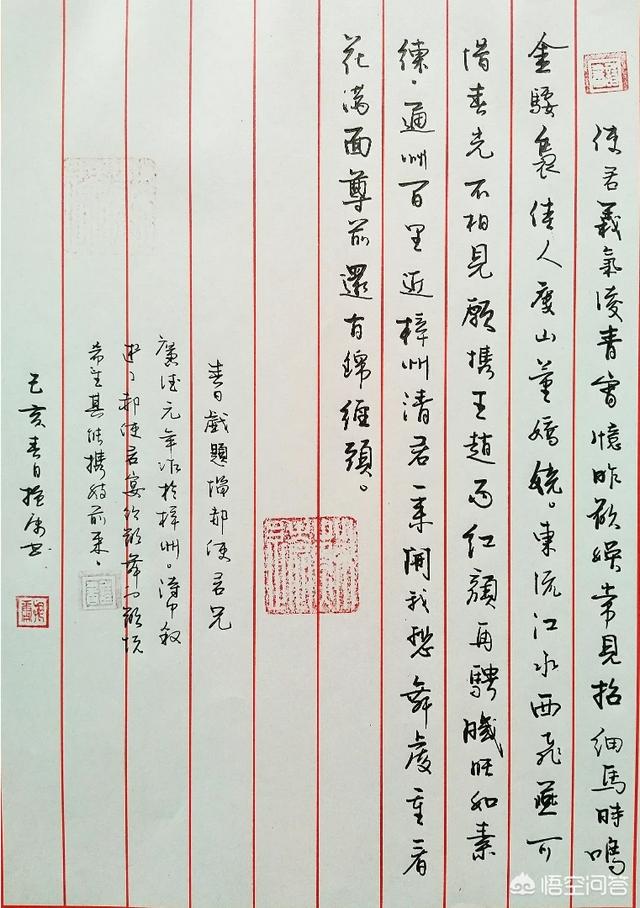 使君義氣凌青霄憶昨歡娛常見招細馬時鳴
金騕褭佳人屢出董嬌嬈。東流江水西飛燕可
惜春光不相見願攜王趙兩紅顏再騁肌膚如素
練。通州百里近梓州請君一來開我愁舞處重看
花滿面尊前還有錦纏頭。
春日戲題惱郝使君兄
廣德元年作於梓州。詩中叙
述了郝使君宴飲歌舞
希望其能攜妓前來。
己亥春日
悟空问答